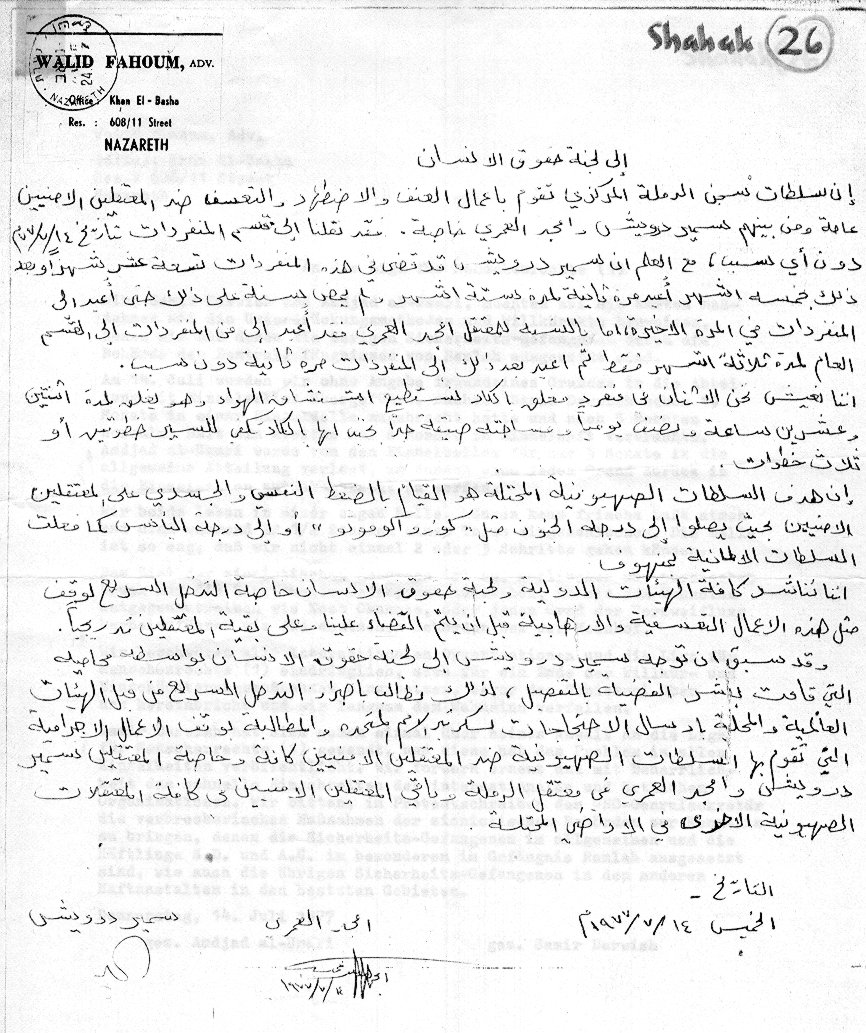 Shahak 26
WALID FAHOUM, ADV.
Office: Khan El-Basha
Res.: 608/11 Street
NAZARETH
إلى لجنة حقوق الانسان
إن سلطات سجن الرملة المركزي تقوم باعمال العنف والاضطهاد والتعسف ضد المعتقلين الامنيين
عامة ومن بينهم سمير درويش وامجد العمري خاصة. فقد نقلنا إلى قسم المنفردات تاريخ ١٤/٧/٧٧م
دون أي سبب، مع العلم ان سمير درويش قد قضى في هذه المنفردات تسعة عشر شهراً وبعد
ذلك بخمسة اشهر أُعيد مرة ثانية لمدة ستة اشهر ولم يمض سنة على ذلك حتى أُعيد الى
المنفردات في المدة الاخيرة، اما بالنسبة للمعتقل امجد العمري فقد أُعيد إلى من المنفردات الى القسم
العام لمدة ثلاثة اشهر فقط ثم اعيد بعد ذلك الى المنفردات مرة ثانية دون سبب.
اننا نعيش نحن الاثنان في منفرد مغلق نكاد لا نستطيع استنشاق الهواء وهو مغلق لمدة اثنتين
وعشرين ساعة ونصف يومياً ومساحته ضيقة جداً حتى انها لا تكاد تكفي للسير خطوتين أو
ثلاث خطوات.
إن هدف السلطات الصهيونية المحتلة هو القيام بالضغط النفسي والجسدي على المعتقلين
الامنيين بحيث يصلوا إلى درجة الجنون مثل "كوزو اوكوموتو" او إلى درجة اليأس كما فعلت
السلطات الالمانية
اننا نناشد كافة الهيئات الدولية ولجنة حقوق الانسان خاصة التدخل السريع لوقف
مثل هذه الاعمال التعسفية والارهابية قبل ان يتم القضاء علينا وعلى بقية المعتقلين تدريجياً.
وقد سبق ان توجه سمير درويش الى لجنة حقوق الانسان بواسطة محاميه
التي قامت بنشر القضية بالتفصيل، لذلك نطالب باصرار التدخل السريع من قبل الهيئات
العالمية والمحلية بارسال الاحتجاجات لسكرتير الامم المتحدة والمطالبة بوقف الاعمال الاجرامية
التي تقوم بها السلطات الصهيونية ضد المعتقلين الامنيين كافة وخاصة المعتقلين سمير
درويش وامجد العمري في معتقل الرملة وباقي المعتقلين الامنيين في كافة المعتقلات
الصهيونية الاخرى في الاراضي المحتلة.
التاريخ -
الخميس ١٤/٧/١٩٧٧م
امجد العمري
سمير درويش